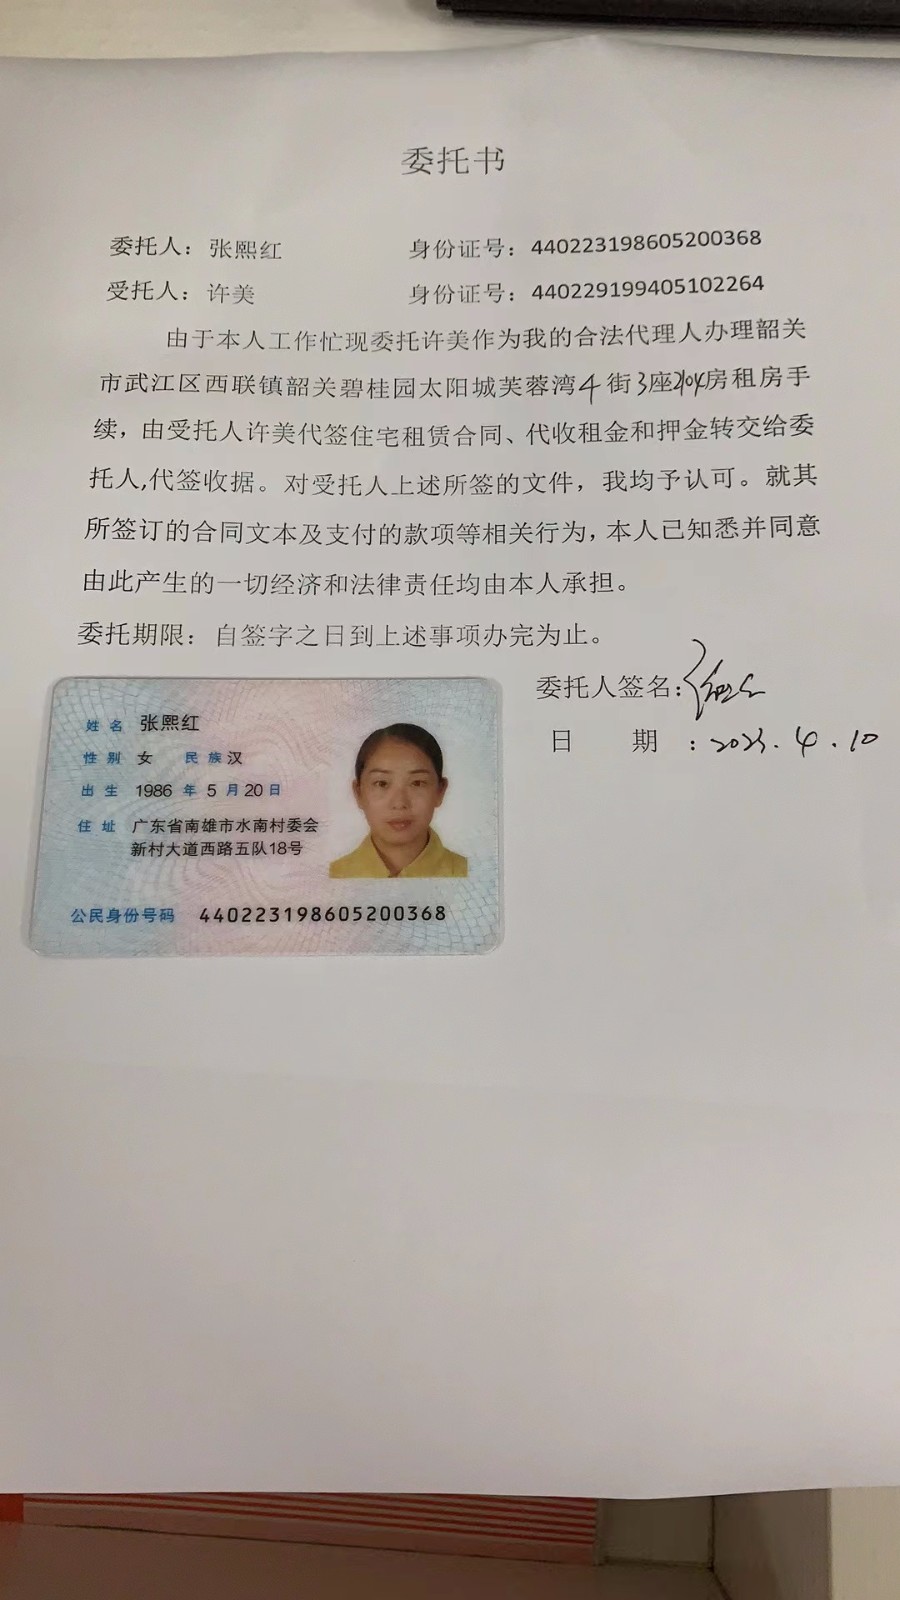 委托书
委托人：张熙红 身份证号：440223198605200368
受托人：许美 身份证号：440229199405102264
由于本人工作忙现委托许美作为我的合法代理人办理韶关
市武江区西联镇韶关碧桂园太阳城芙蓉湾4街3座2104房租房手
续，由受托人许美代签住宅租赁合同、代收租金和押金转交给委
托人,代签收据。对受托人上述所签的文件，我均予认可。就其
所签订的合同文本及支付的款项等相关行为，本人已知悉并同意
由此产生的一切经济和法律责任均由本人承担。
委托期限：自签字之日到上述事项办完为止。
委托人签名：
日 期 ：2023.4.10
姓名 张熙红
性别 女 民族 汉
出生 1986 年 5 月 20 日
住址 广东省南雄市水南村委会
新村大道西路五队18号
公民身份号码 440223198605200368